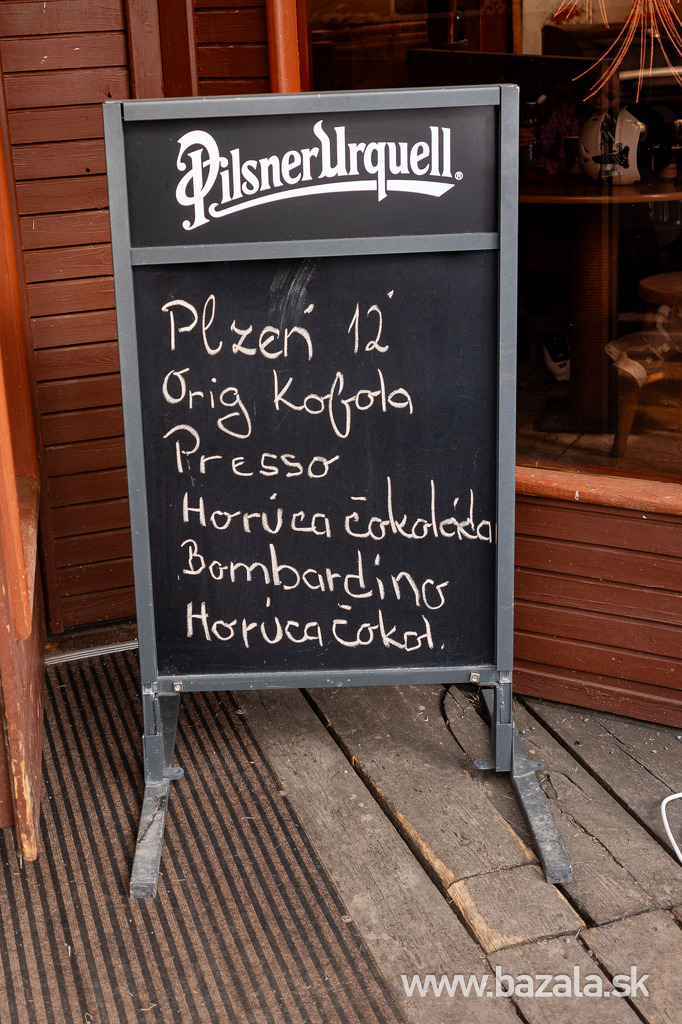 Pilsner Urquell®
Plzeň 12°
Orig Kofola
Presso
Horúca čokoláda
Bombardino
Horúca čokol.
www.bazala.sk